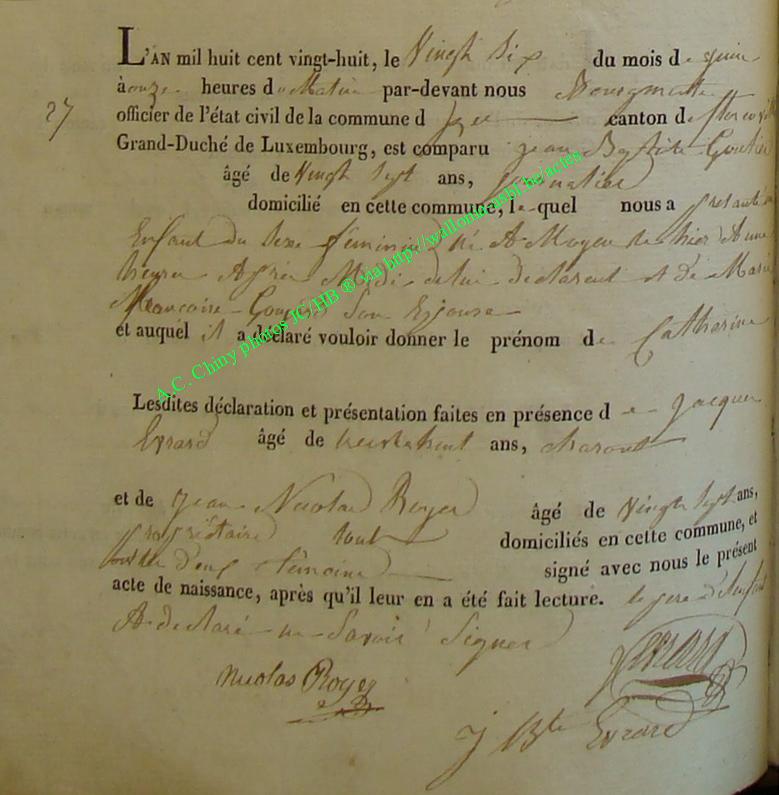 L'AN mil huit cent vingt-huit, le Vingt Six du mois de juin
à onze heures du Matin par-devant nous Bourgmestre
27
officier de l'état civil de la commune d canton de
Grand-Duché de Luxembourg, est comparu jean Baptiste
âgé de Vingt Sept ans,
domicilié en cette commune, le quel nous a présenté un
Enfant du Sexe féminin né A Moyen le hier A une
heure Après Midi de lui declarent et de Marie
Françoise Son Epouse
et auquel il a déclaré vouloir donner le prénom de Catharine
Lesdites déclaration et présentation faites en présence de jacques
Evrard âgé de ans,
et de jean Nicolas Royer âgé de Vingt Sept ans,
propriétaire tout domiciliés en cette commune, et
deux témoins signé avec nous le présent
acte de naissance, après qu'il leur en a été fait lecture. le pere d'Enfant
A declaré ne Savoir Signer
Nicolas Royer
J Bte Evrard
A.C. Chiny photos JC/HB ® via http://wallonia.asbl.be/actes